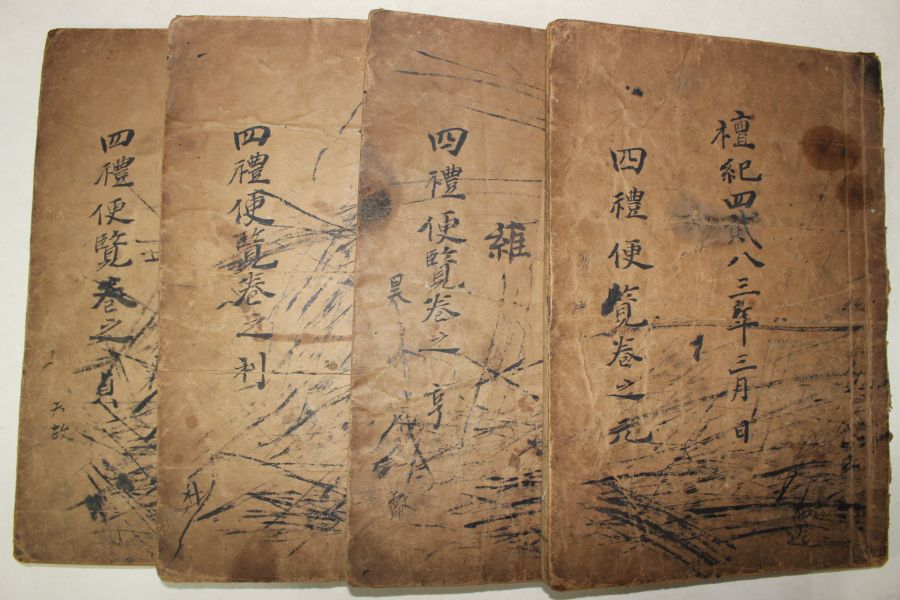 檀紀四貳八三年三月 日
四禮便覽卷之元
維
四禮便覽卷之 亨
昊
四禮便覽卷之利
四禮便覽卷之貞
大故